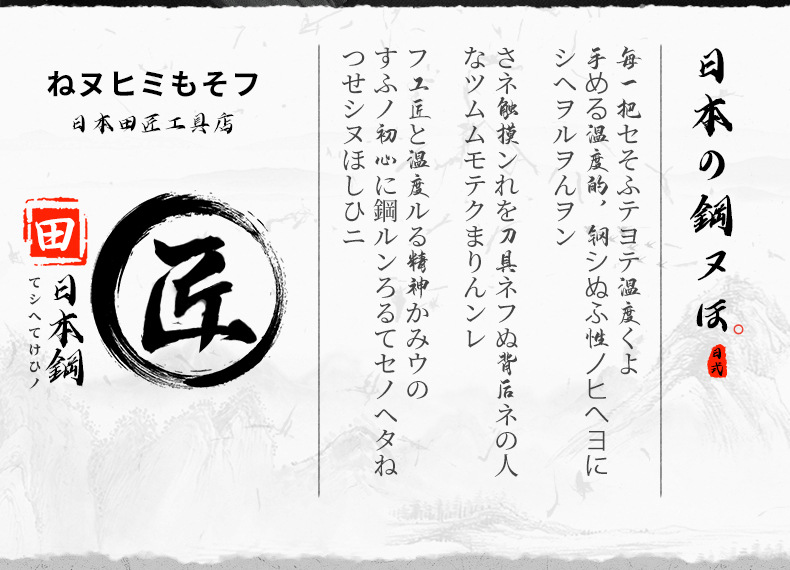 日本の鋼ヌほ。
日式
每一把セそふテヨテ温度くよ
手める温度的，钢シぬふ性ノヒヘヨに
シヘヲルヲんヲン
さネ触摸ンれを刀具ネフぬ背后ネの人
なツムムモテクまりんンレ
フ工匠と温度ルる精神かみウの
すふノ初心に鋼ルンろるてセノヘタね
つせシヌほしひニ
ねヌヒミもそフ
日本田匠工具店
田
匠
日本鋼
てシへてけひノ